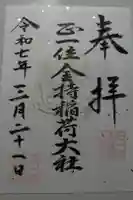 奉拝
正一位金持稲荷大社
令和七年三月二十一日